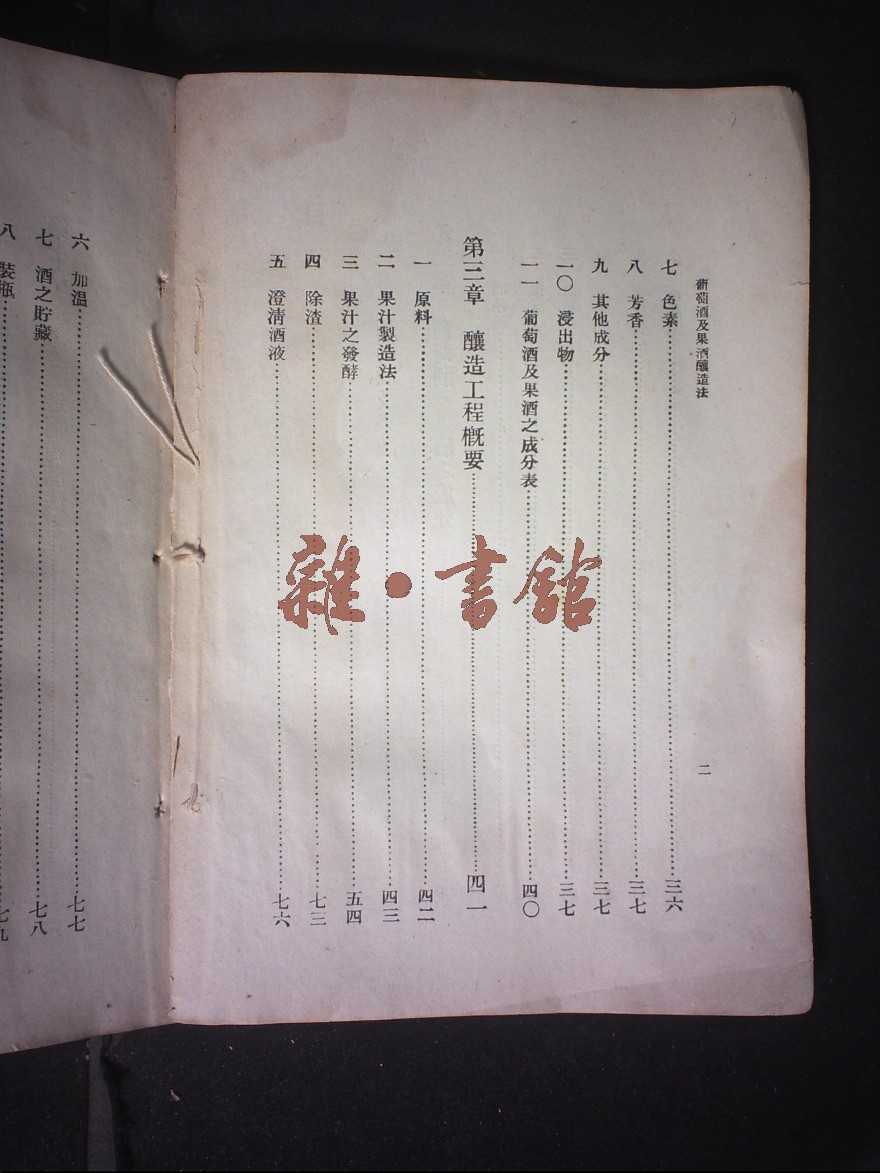 葡萄酒及果酒釀造法
二
七 色素 三六
八 芳香 三七
九 其他成分 三七
一〇 浸出物 三七
一一 葡萄酒及果酒之成分表 四〇
第三章 釀造工程槪要 四一
一 原料 四二
二 果汁製造法 四三
三 果汁之發酵 五四
四 除渣 七三
五 澄淸酒液 七六
六 加溫 七七
七 酒之貯藏 七八
八 裝瓶 七九
雜·書館